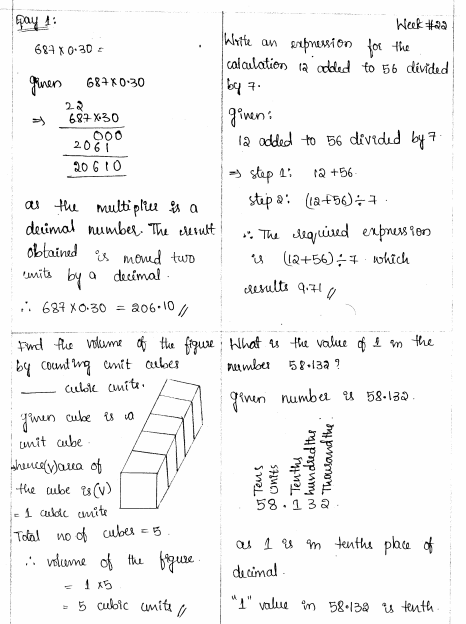 Day 1:
687 × 0.30 =
given 687 × 0.30
22
⇒ 687 × .30
000
2061
20610
as the multiplier is a
decimal number. The result
obtained is moved two
units by a decimal.
∴ 687 × 0.30 = 206.10 //
Week #22
Write an expression for the
calculation 12 added to 56 divided
by 7.
given:
12 added to 56 divided by 7.
⇒ step 1: 12 + 56
step 2: (12+56) ÷ 7
∴ The required expression
is (12+56) ÷ 7 which
results 9.71 //
Find the volume of the figure
by counting unit cubes
____ cubic units.
given cube is a
unit cube.
hence (v) area of
the cube is (v)
= 1 cubic units
Total no of cubes = 5.
∴ volume of the figure
= 1 × 5
= 5 cubic units //
What is the value of 1 in the
number 58.132?
given number is 58.132.
Tens
Units
Tenths
hundredths
Thousandths.
58.132
as 1 is in tenths place of
decimal.
"1" value in 58.132 is tenth.